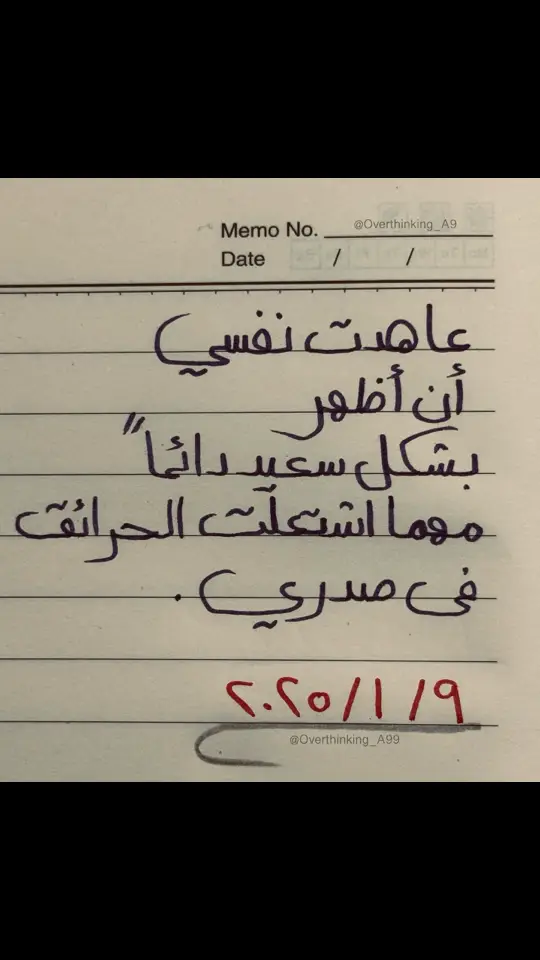 Memo No. @Overthinking_A9
Date / /
عاهدت نفسي
أن أظهر
بشكل سعيد دائماً
مهما اشتعلّت الحرائق
في صدري .
٢٠٢٥/١/٩
@Overthinking_A99